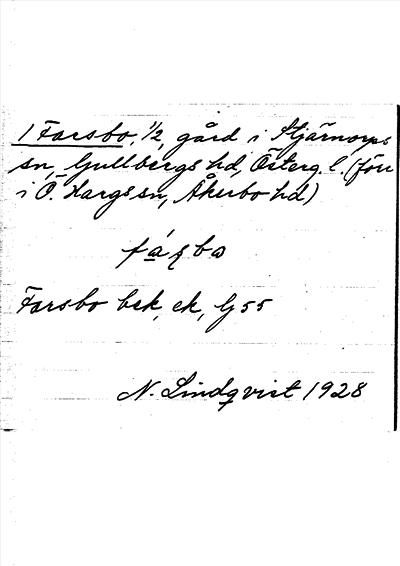 1 Farsbo, 1/2, gård i Stjärnorps
sn, Gullbergs hd, Österg. l. (förr
i Ö. Hargs sn, Åkerbo hd)
Farsbo bek, ek, Gj 55
N. Lindqvist 1928